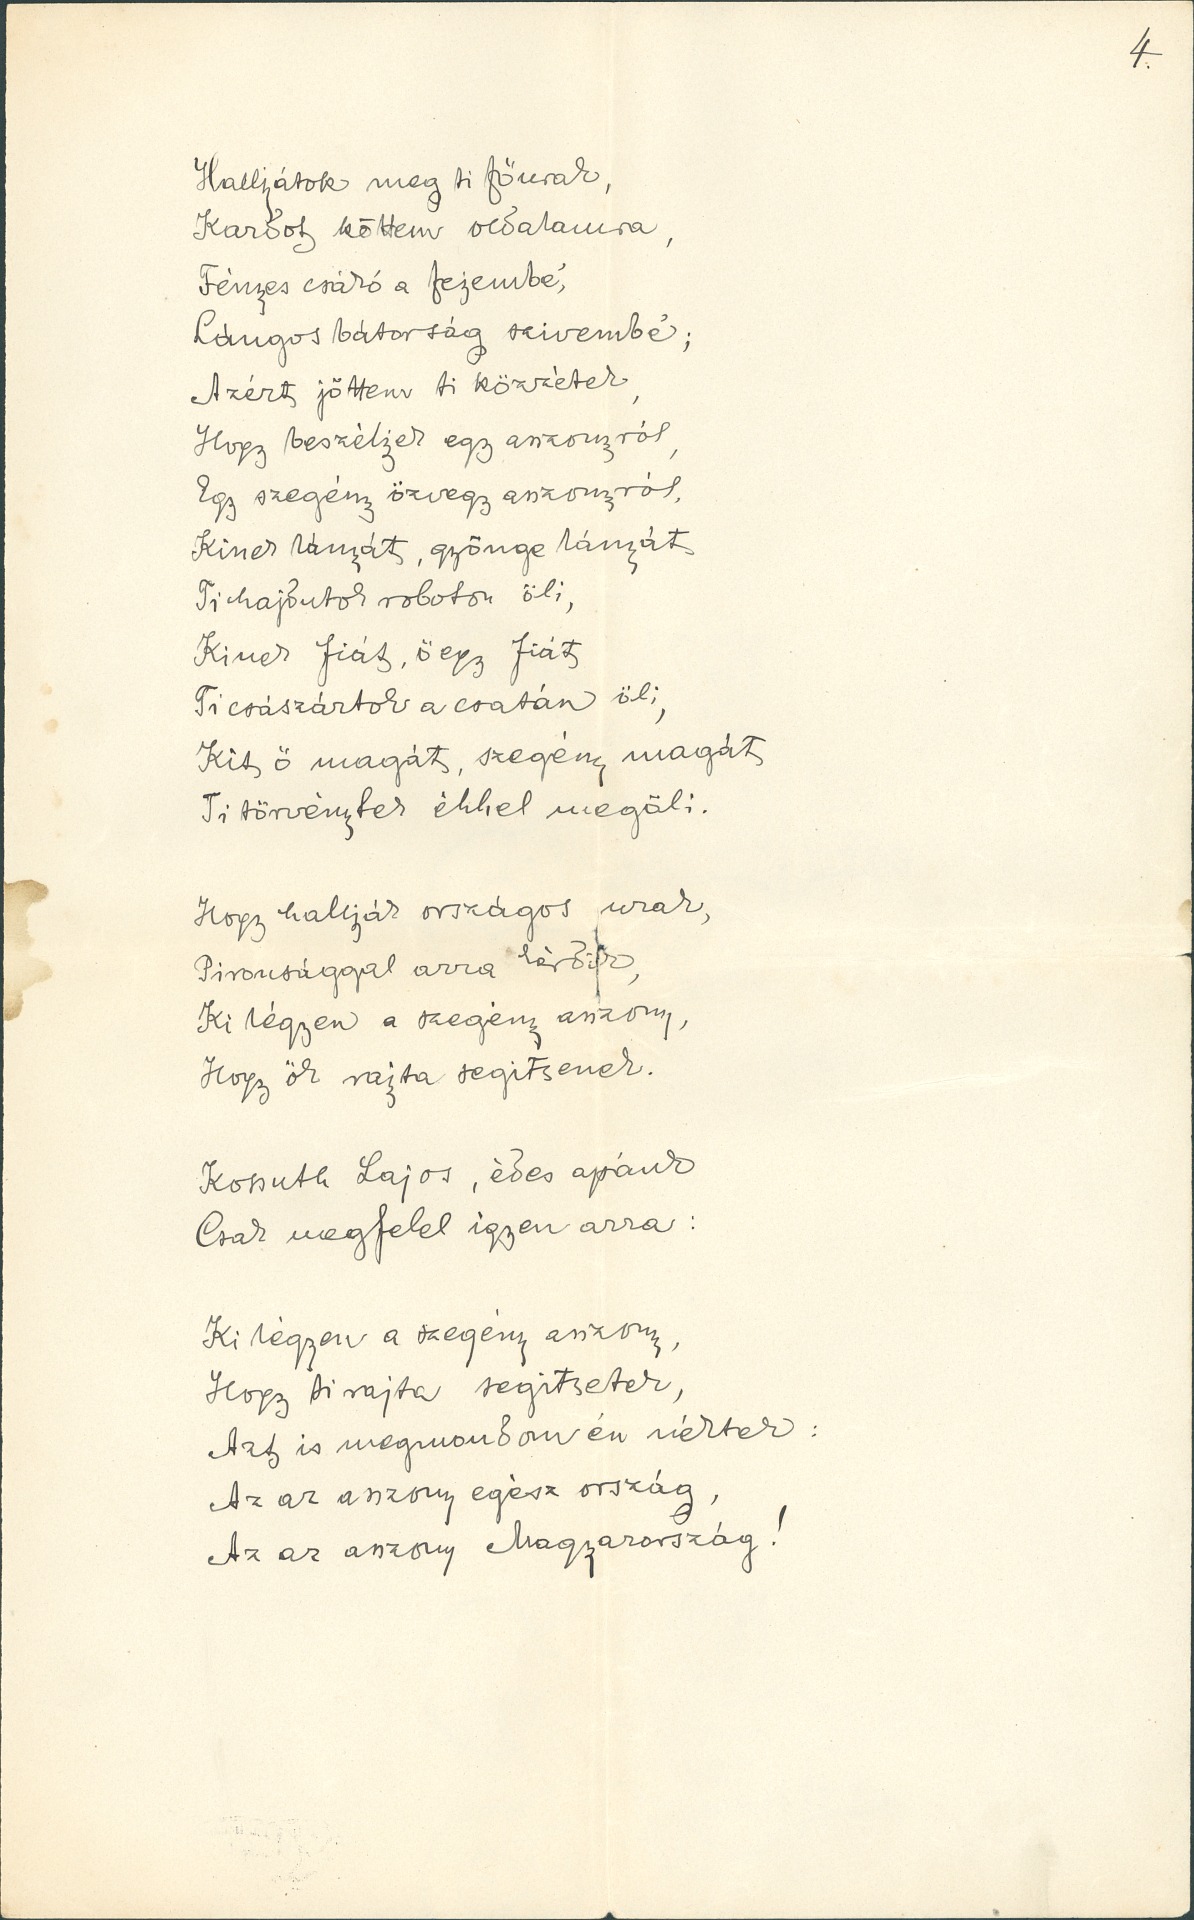 4.
Halljátok meg ti főurak,
Kardot köttem oldalamra,
Fényes csákó a fejembé,
Lángos bátorság szivembé;
Azért jöttem ti közzétek,
Hogy beszéljek egy asszonyról,
Egy szegény özvegy asszonyról,
Kinek lányát, gyönge lányát
Ti hajdutok roboton öli,
Kinek fiát, ő egy fiát
Ti császártok a csatán öli,
Kit ő magát, szegény magát
Ti törvénytek éhhel megöli.
Hogy hallják országos urak,
Pironsággal arra kérdik,
Ki légyen a szegény asszony,
Hogy ők rajta segitsenek.
Kossuth Lajos, édes apánk
Csak megfelel igyen arra:
Ki légyen a szegény asszony,
Hogy ti rajta segitsetek,
Azt is megmondom én néktek:
Az az asszony egész ország,
Az az asszony Magyarország!